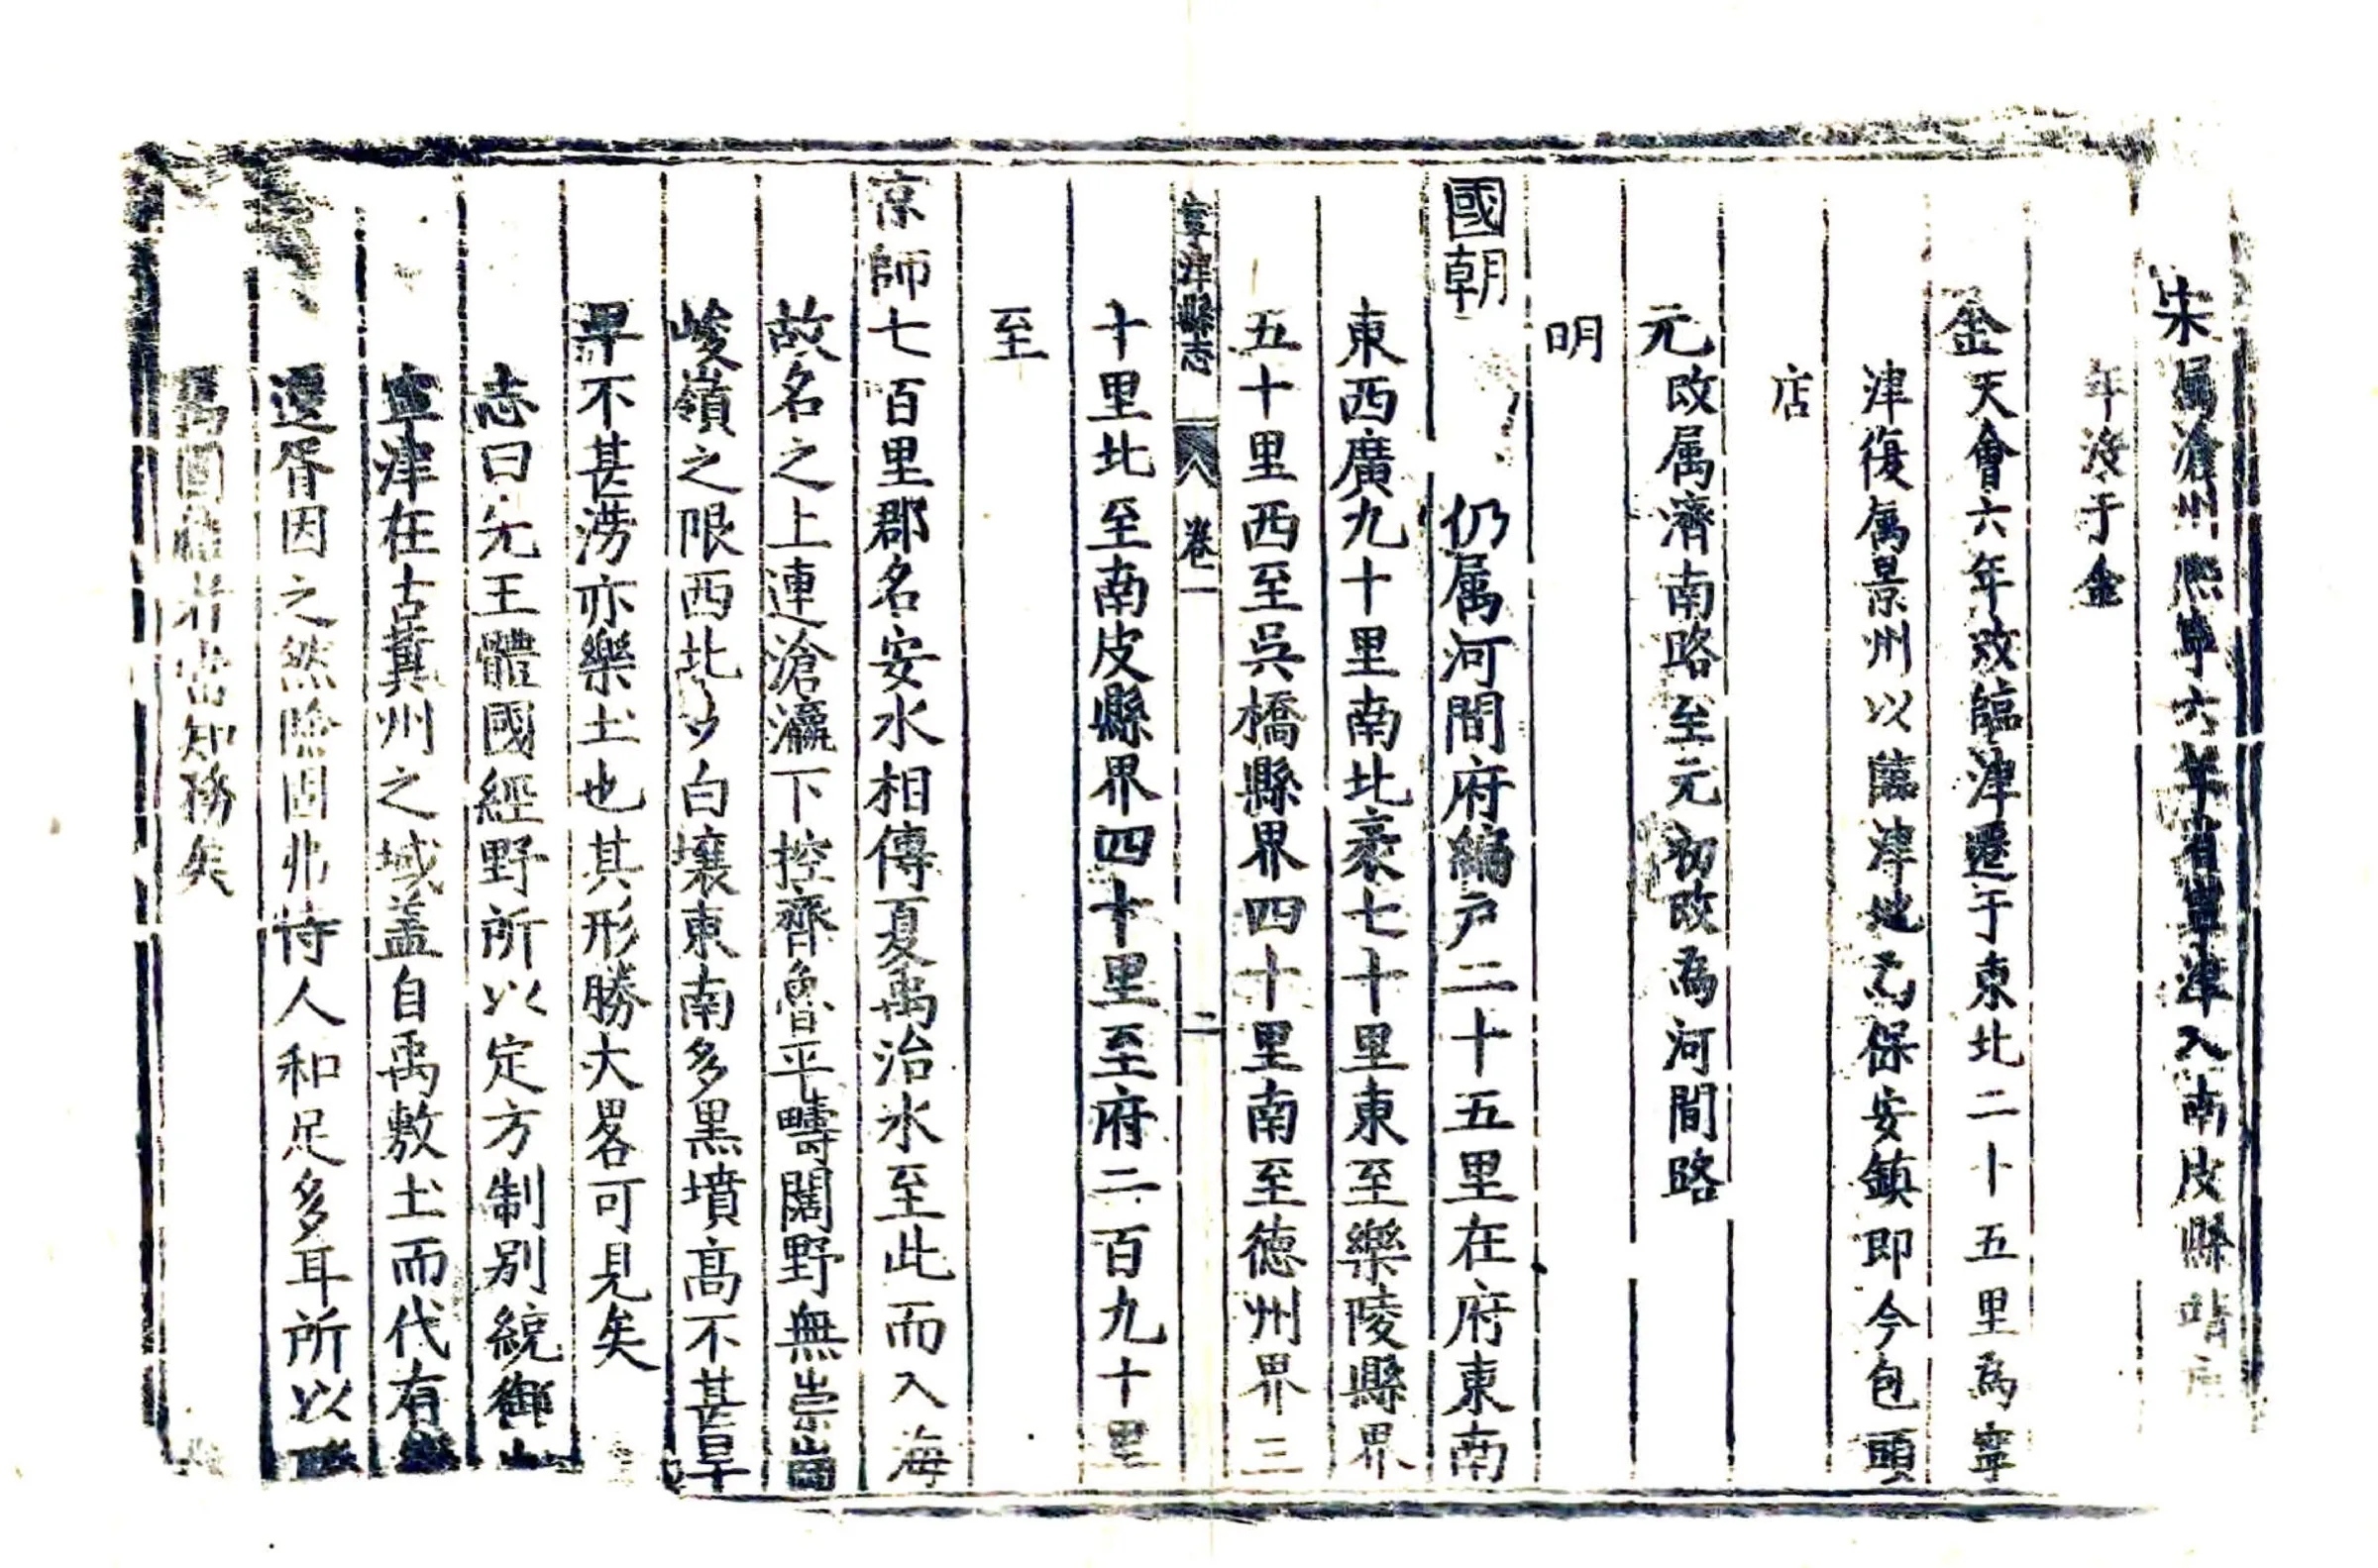 宋属滄州熙寧六年省寧津入南皮縣靖
年没于金
金天會六年改臨津遷于東北二十五里為寧
津復属景州以臨津地為保安鎮即今包頭
店
元改属濟南路至元初改為河間路
明
國朝仍属河間府編户二十五里在府東南
東西廣九十里南北袤七十里東至樂陵縣界
五十里西至吳橋縣界四十里南至德州界三
寧津縣志 卷一 二
十里北至南皮縣界四十里至府二百九十里
至
京師七百里郡名安水相傳夏禹治水至此而入海
故名之上連滄瀛下控齊魯平疇闊野無崇崗
峻嶺之限西北多白壤東南多黒墳髙不甚旱
畀不甚澇亦樂土也其形勝大畧可見矣
志曰先王體國經野所以定方制别統御
寧津在古冀州之域盖自禹敷土而代有
遷胥因之然險固弗恃人和足多耳所以
為圖者當知務矣